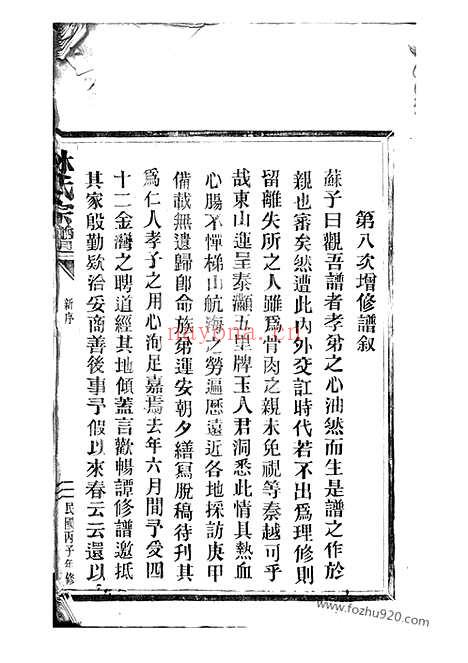 第八次增修譜叙
蘇子曰觀吾譜者孝弟之心油然而生是譜之作於
親也審矣然遭此內外交訌時代若不出爲理修則
留離失所之人雖爲骨肉之親未免視等秦越可乎
哉東山運呈泰灝五星牌玉八君洞悉此情具熱血
心腸不憚梯山航海之勞遍歷遠近各地採訪庚甲
備載無遺歸郎命族弟運安朝夕繕寫脫稿待刋其
爲仁人孝子之用心洵足嘉焉去年六月間予受四
十二金灣之聘道經其地傾蓋言歡暢譚修譜邀抵
其家殷勤欵治妥商善後事予假以來春云云還以
林氏宗譜
新序
民國丙子年修
ndyona.cn
www.fozhu920.com